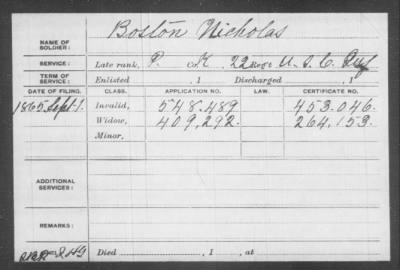 Boston Nicholas
NAME OF SOLDIER:
SERVICE: Late rank, P. Co. K, 22 Reg't U. S. C. Inf
TERM OF SERVICE: Enlisted , 1 Discharged , 1
DATE OF FILING. CLASS. APPLICATION NO. LAW. CERTIFICATE NO.
1865 Sept 1. Invalid, 548.489 453.046.
Widow, 409,292. 264.153.
Minor,
ADDITIONAL SERVICES:
REMARKS:
Died , 1 , at